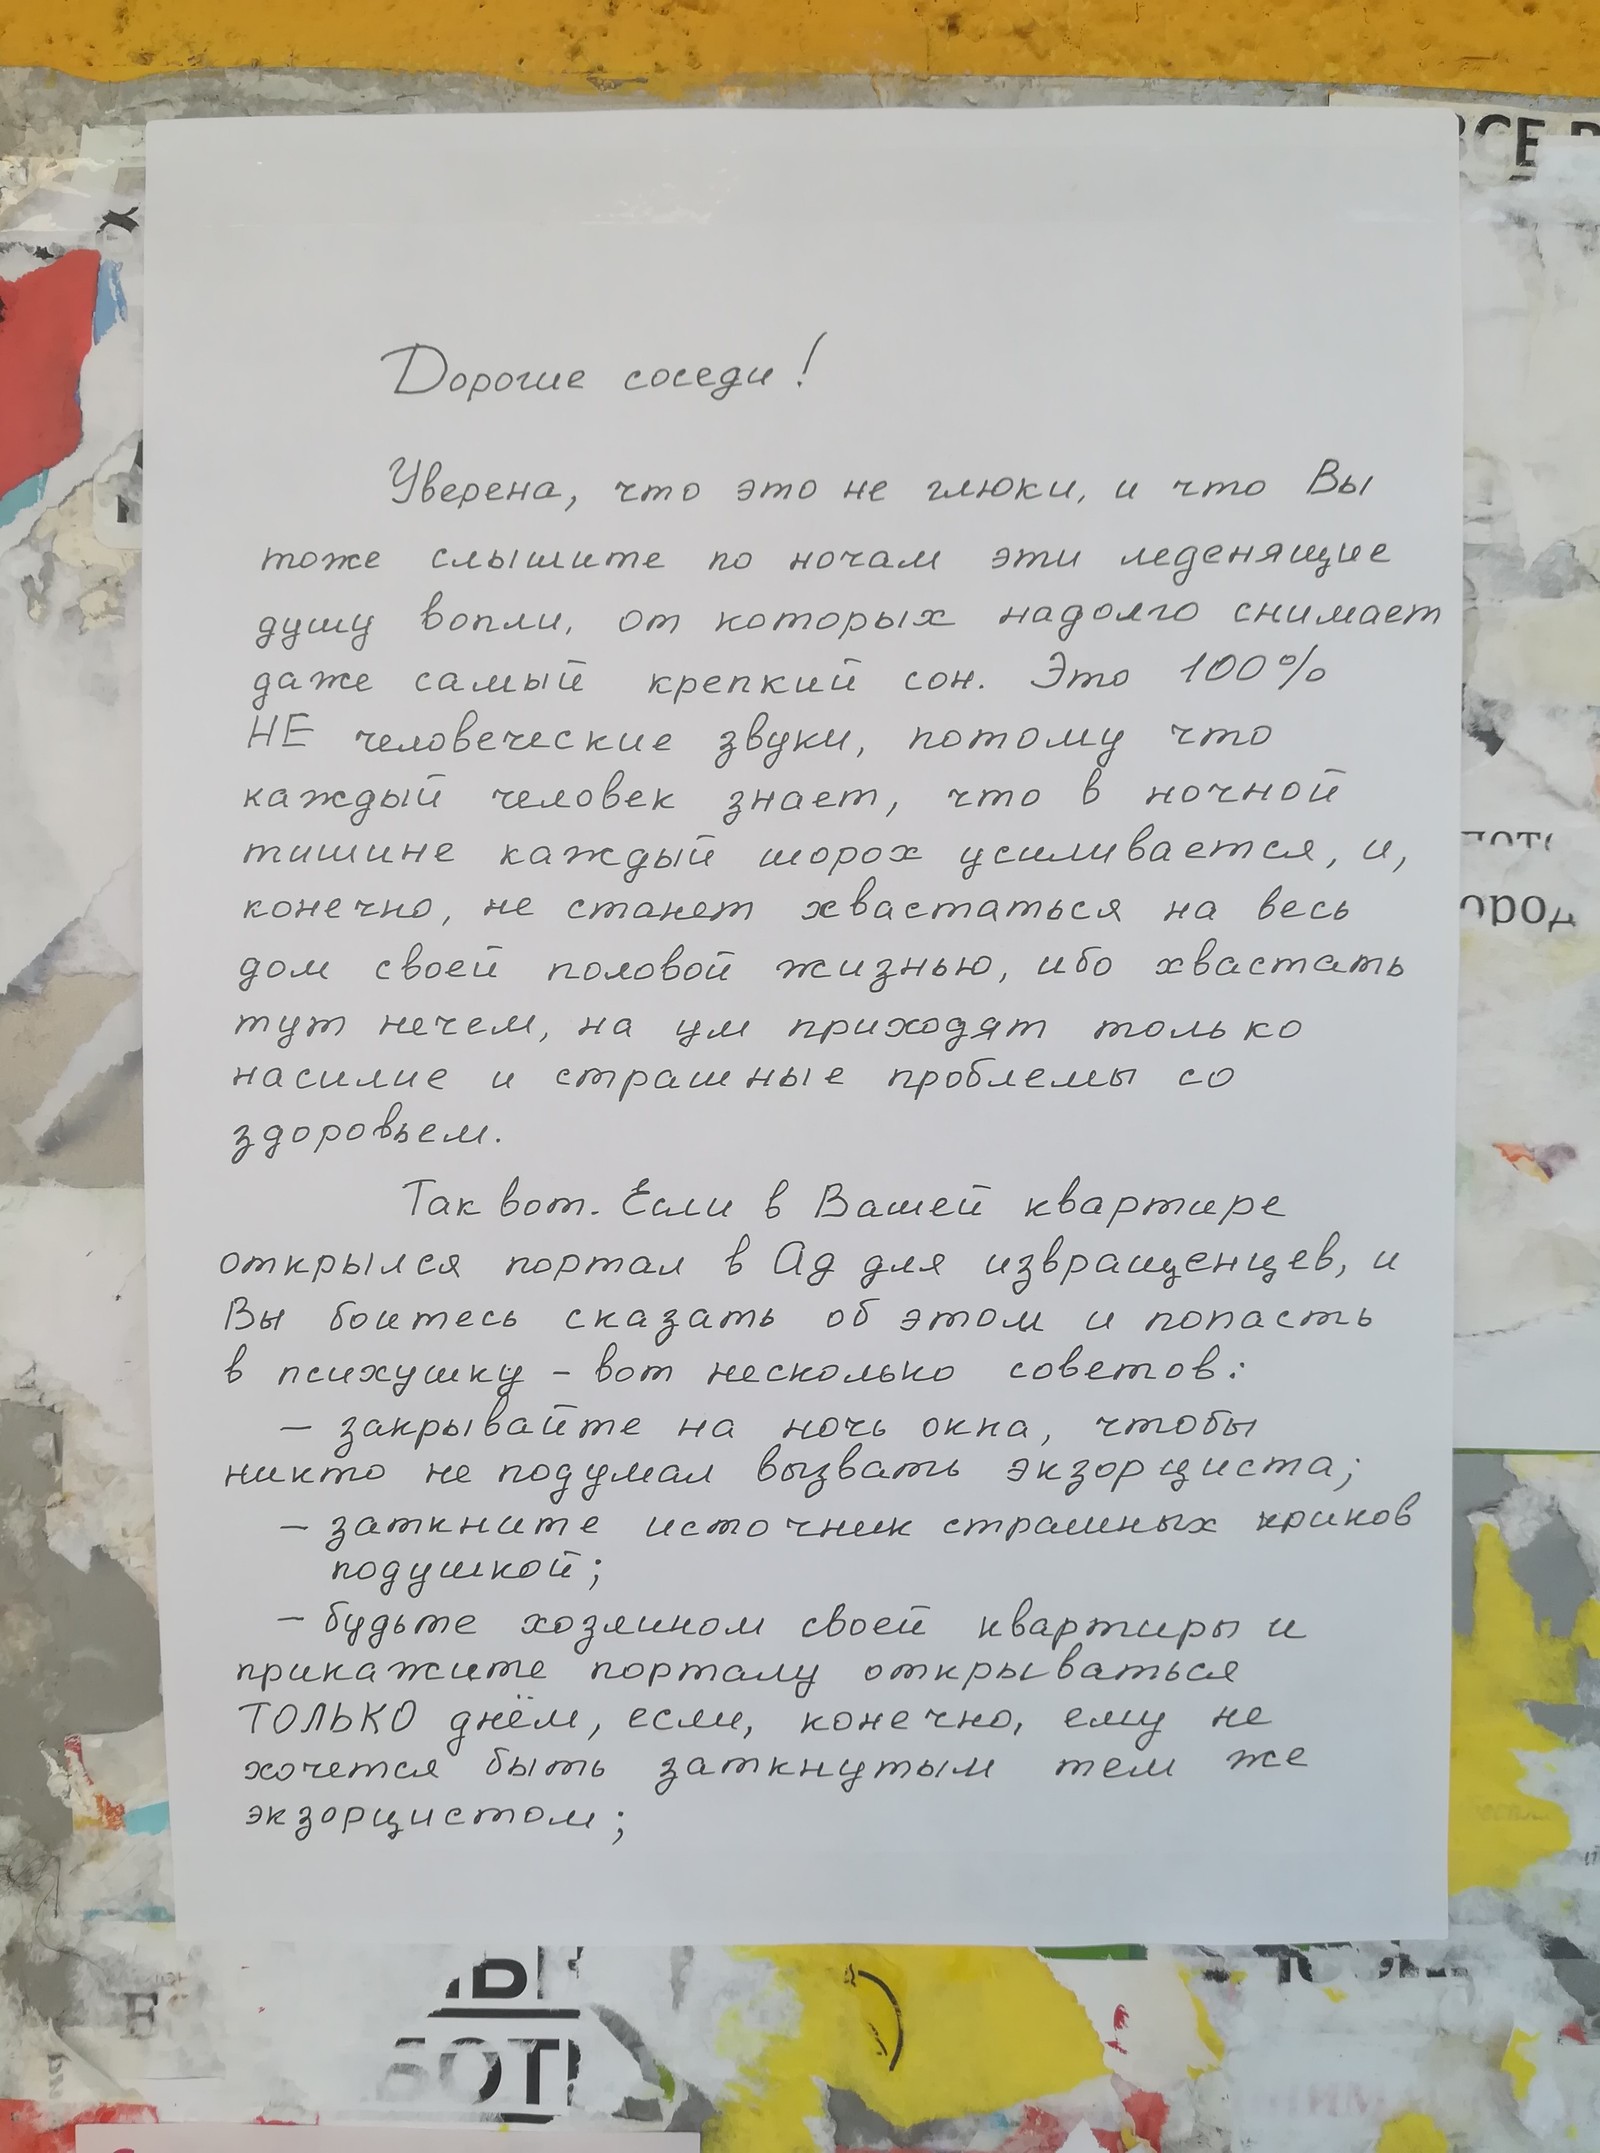 ВСЕ
Дорогие соседи!
Уверена, что это не глюки, и что Вы
тоже слышите по ночам эти леденящие
душу вопли, от которых надолго снимает
даже самый крепкий сон. Это 100%
НЕ человеческие звуки, потому что
каждый человек знает, что в ночной
тишине каждый шорох усиливается, и,
конечно, не станет хвастаться на весь
дом своей половой жизнью, ибо хвастать
тут нечем, на ум приходят только
насилие и страшные проблемы со
здоровьем.
Так вот. Если в Вашей квартире
открылся портал в Ад для извращенцев, и
Вы боитесь сказать об этом и попасть
в психушку – вот несколько советов:
– закрывайте на ночь окна, чтобы
никто не подумал вызвать экзорциста;
– заткните источник страшных криков
подушкой;
– будьте хозяином своей квартиры и
прикажите порталу открываться
ТОЛЬКО днём, если, конечно, ему не
хочется быть заткнутым тем же
экзорцистом;